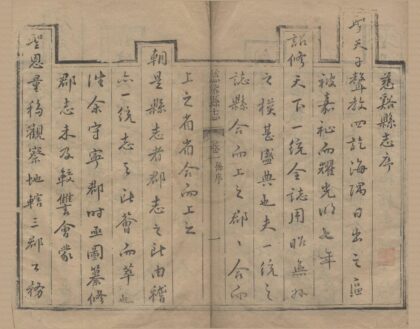 慈谿縣志序
聖天子聲教四訖海隅日出之區
被嘉祉而耀光明
詔修天下一統全誌用昭無外
之模甚盛典也夫一統之
誌縣合而上之郡郡合而
上之省省合而上之
朝是縣志者郡志之所由稽
亦一統志之所薈而萃也
余守寧郡時亟圖纂修
郡志未及較讐會蒙
聖恩量移觀察地轄三郡
慈谿縣志
卷一
序
一